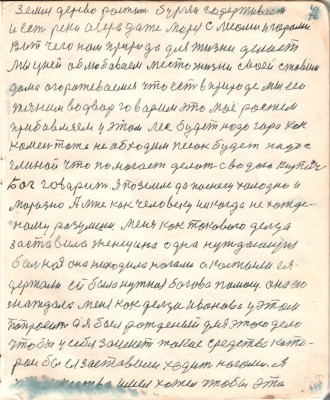 Земля дерево растит бурян содерживает
и есть реки озера даже море с лесами и горами
Вот чего нам природа для жизни делает
Мы у ней обживаем место жизни своей ставим
дома огораживаемся что есть в природе мы его
тянем во двор говорим это мое растем
прибавляем у этом лес будет надо гора как
камень тоже не обходим песок будет надо с
глиной что помогает делать с водою кирпич
Бог говорит Я по земле да по снегу холодно и
морозно А мне как человеку никогда не хоже-
ному разумени меня как такового деда
заставила женщина одна нуждающая
больная она не ходила ногами а костыли ея
держали ей была нужная богова помощь она
ждала меня как деда Иванова у этом
попросить а я был рожденый для этого дело
чтобы у себя заиметь такие средства кото-
рои бы ея заставили ходить ногами. Я
имел хожел чтобы эта